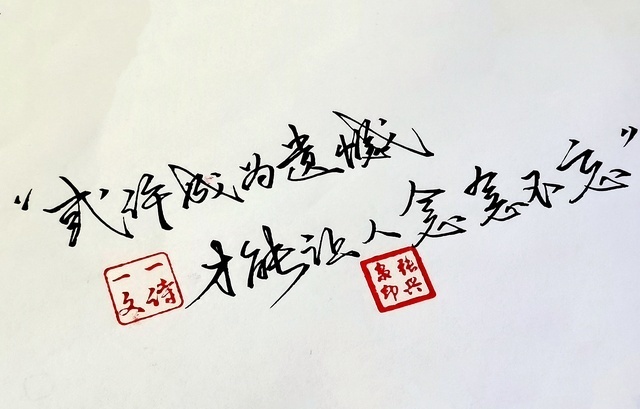 “或许成为遗憾
才能让人念念不忘”
一诗一文
张兴印